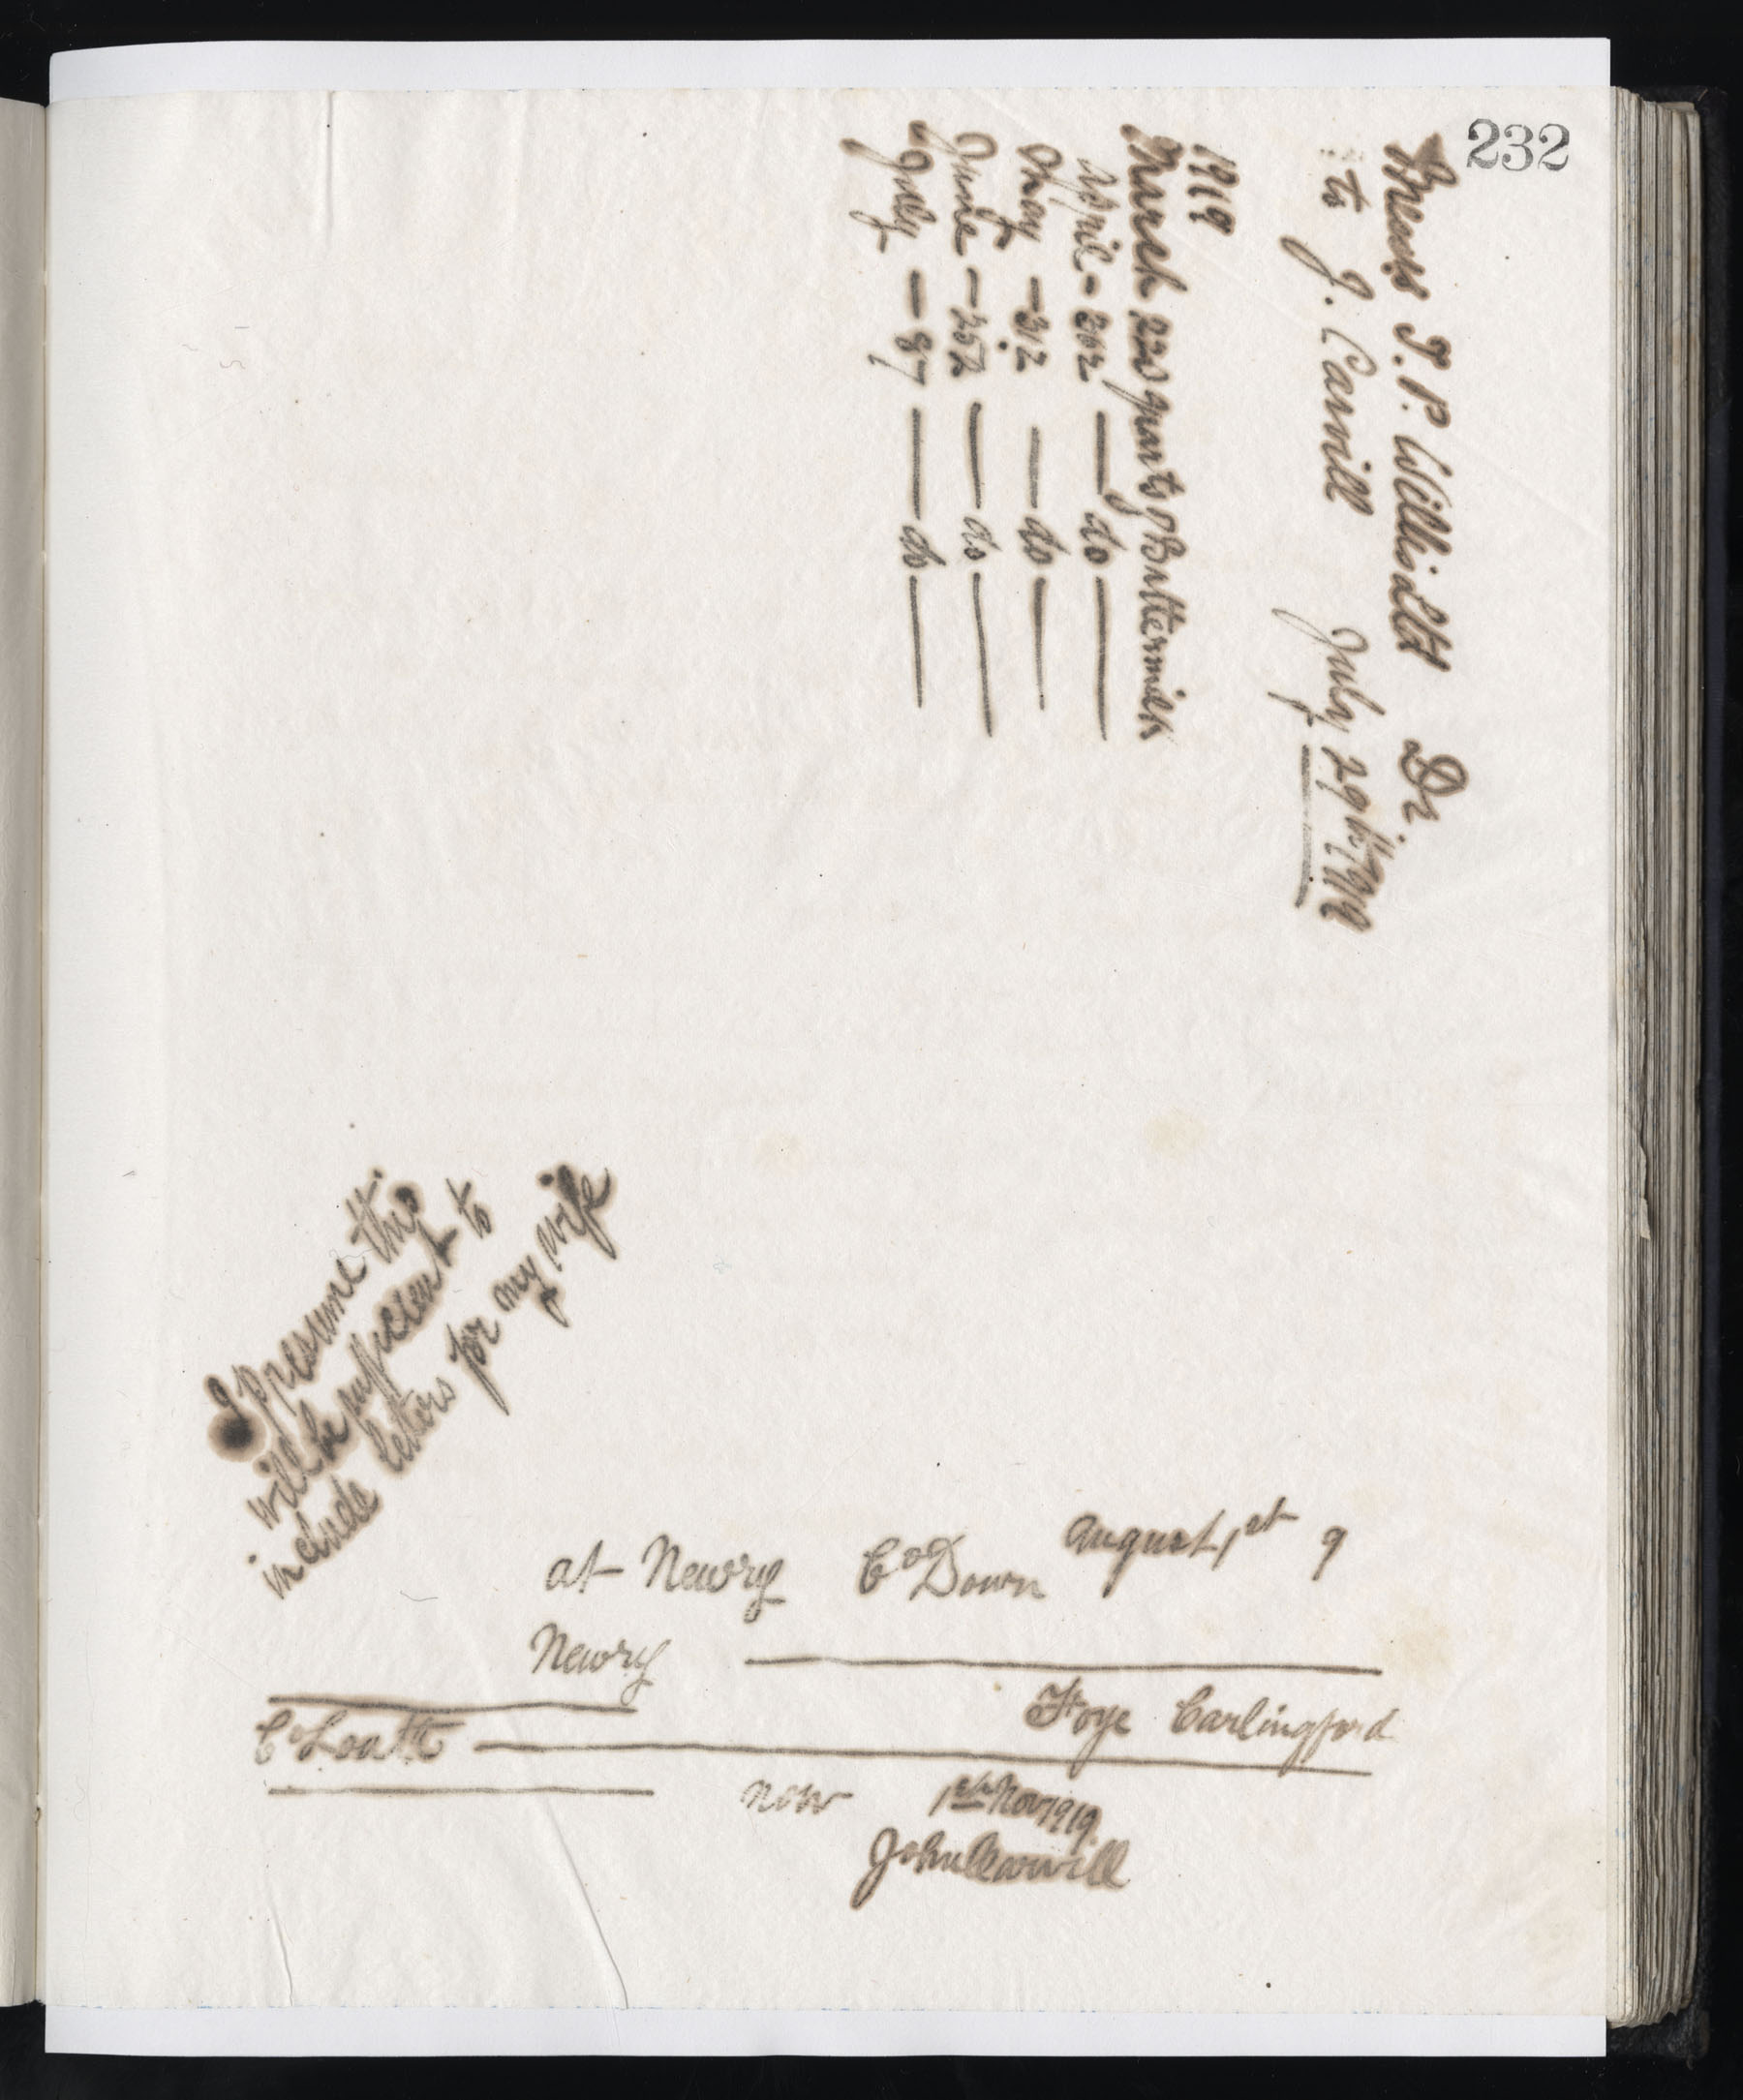 232
Messrs T. P. Willis Ltd Dr.
to J. Carvill July 29th/1919
1919
March 220 quarts of Buttermilk
April - 302 — do —
May - 312 — do —
June - 252 — do —
July - 87 — do —
I presume this
will be sufficient to
include letters for my wife
at Newry Co Down August 1st 9
Newry
Foye Carlingford
Co Louth
now 1st Nov 1919.
John Carvill